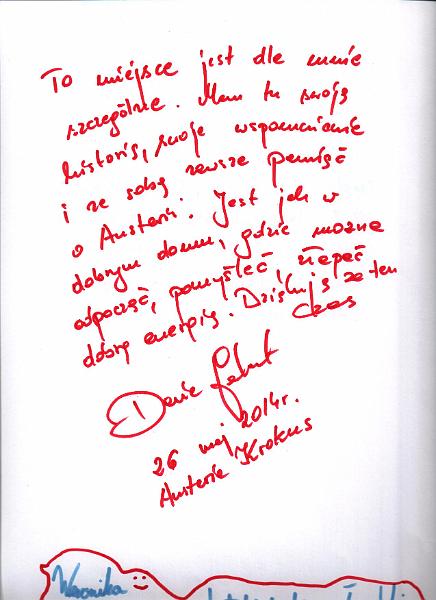 To miejsce jest dla mnie
szczególne. Mam tu swoją
historię, swoje wspomnienie
i ze sobą zawsze pamięć
o Austerii. Jest jak w
dobrym domu, gdzie można
odpocząć, pomyśleć, złapać
dobrą energię. Dziękuję za ten
czas
26 maj 2014r.
Austeria Krokus
Weronika